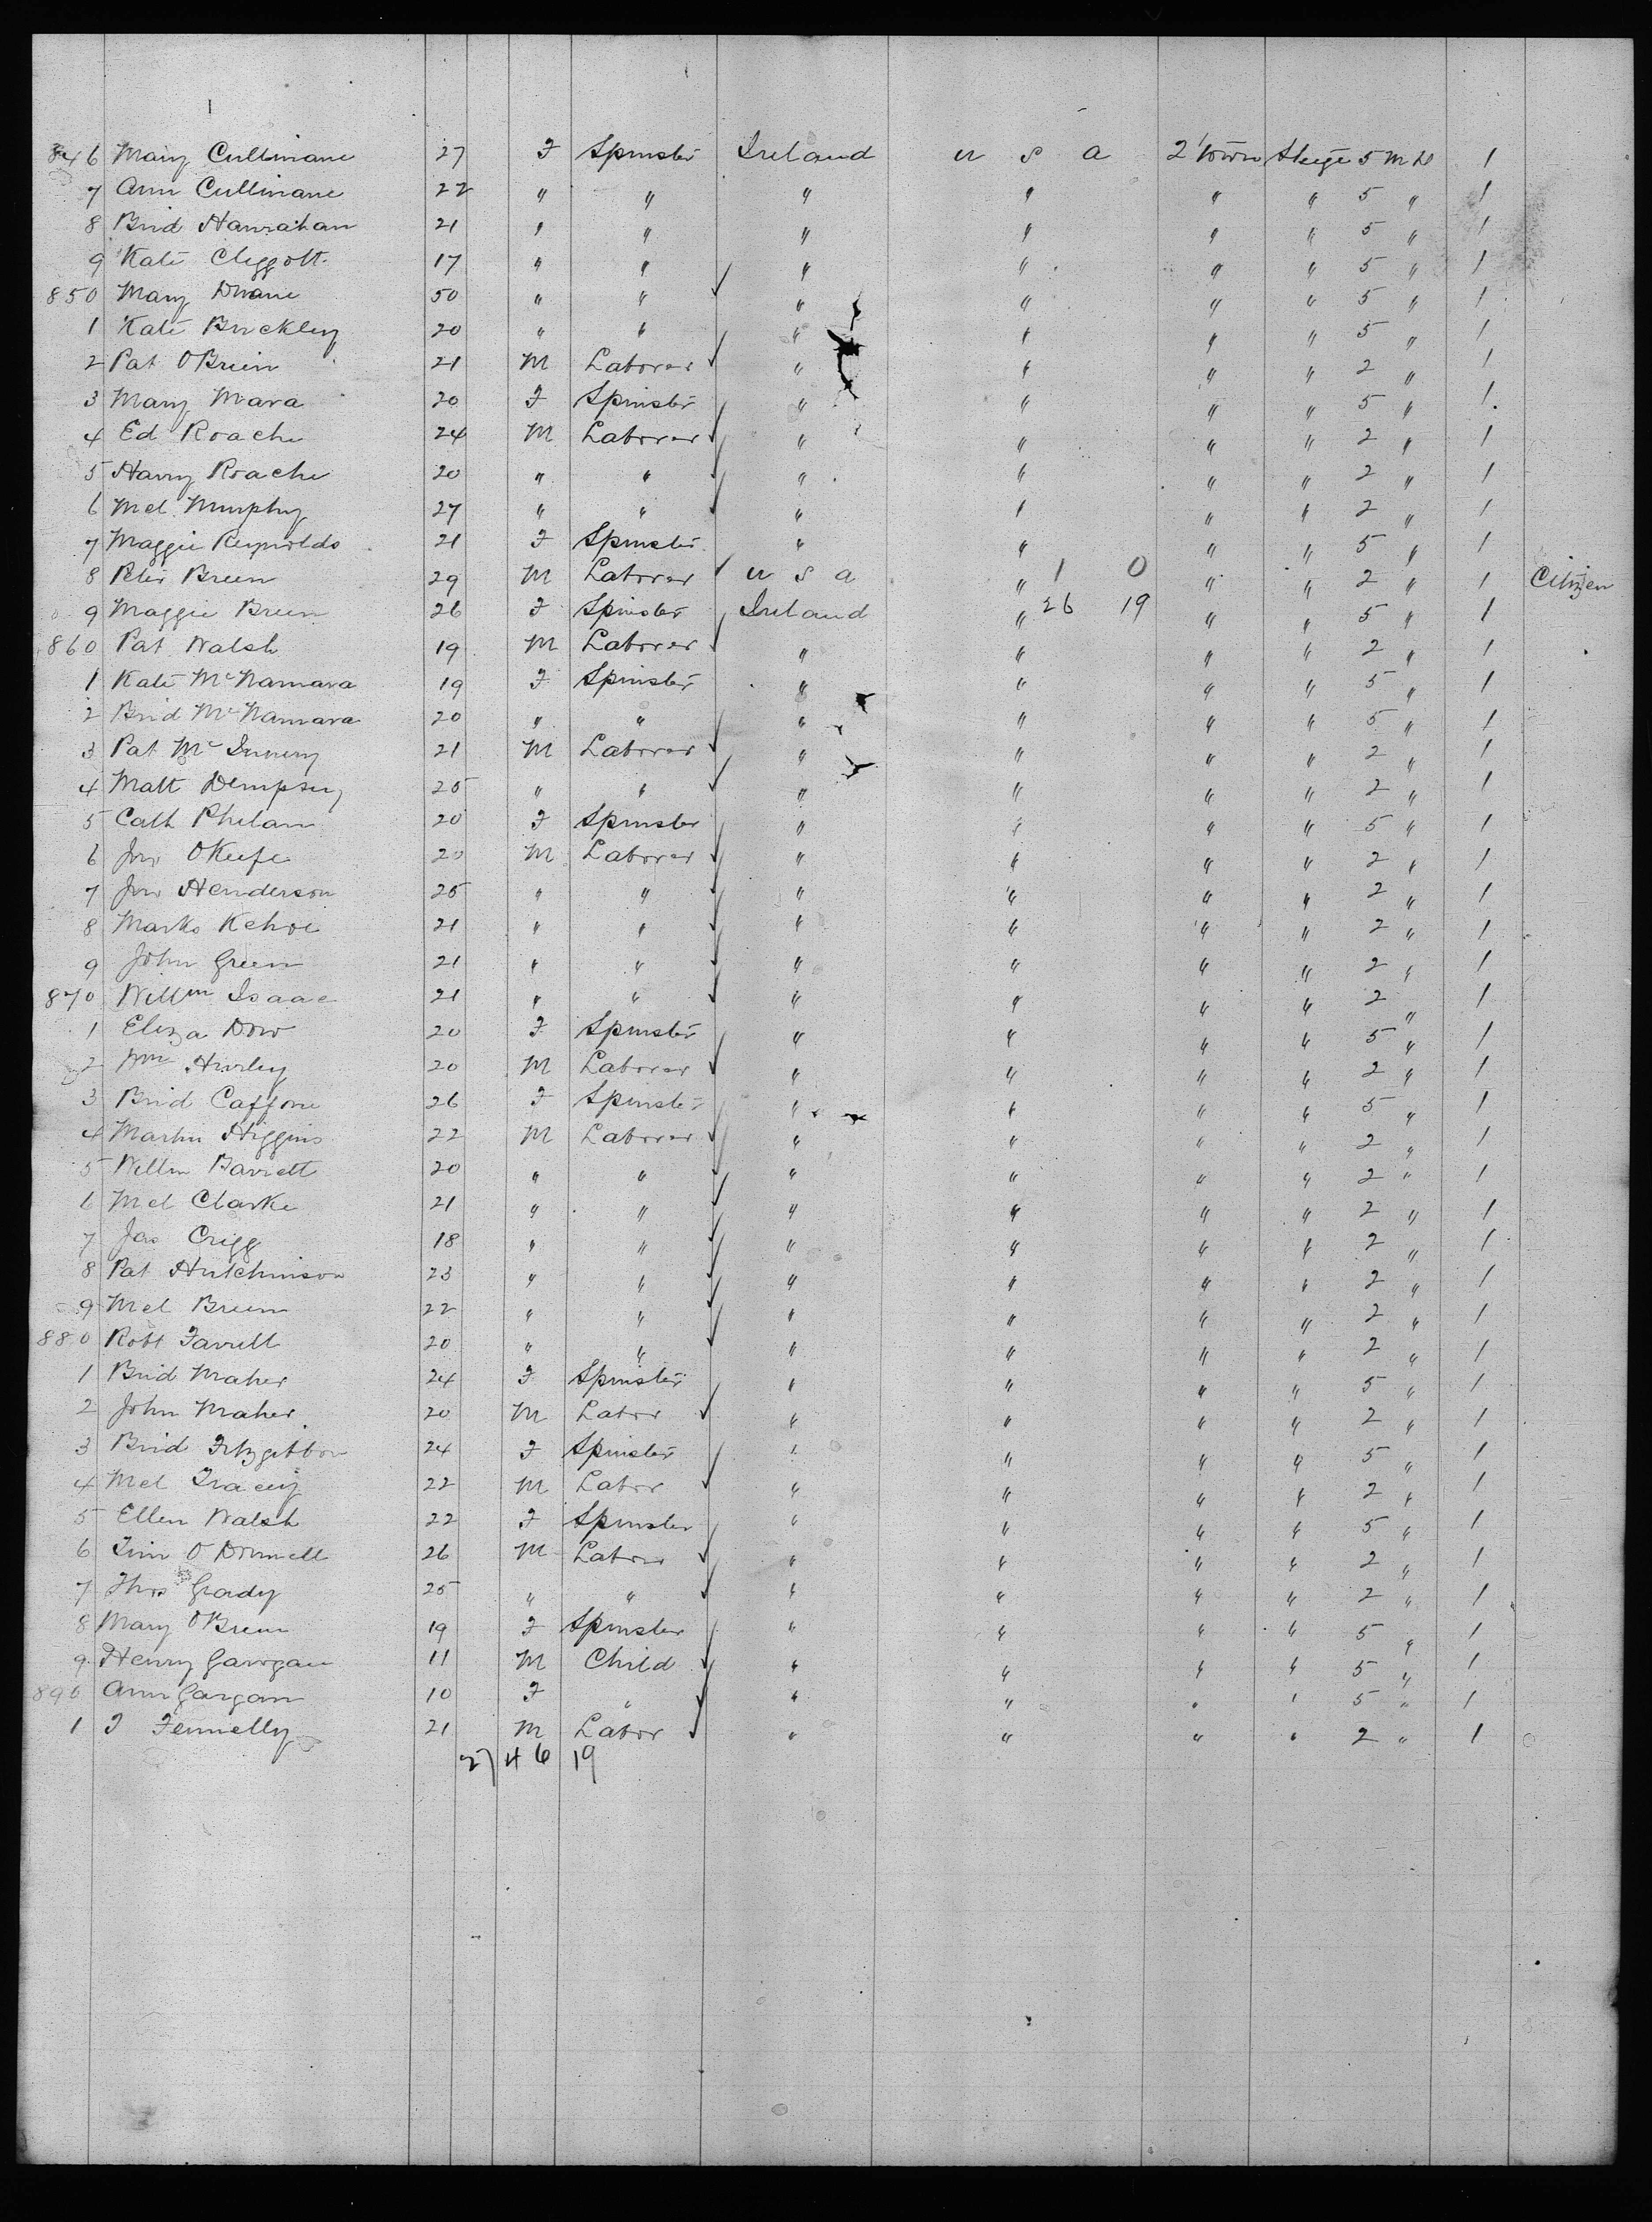 846 Mary Cullinane 27 F Spinster Ireland U S A 2 Town Steege 5 M D 1
7 Ann Cullinane 22 " " " " " " 5 " 1
8 Brid Hanrahan 21 " " " " " " 5 " 1
9 Kate Cleggott 17 " " " " " " 5 " 1
850 Mary Duane 50 " " " " " " 5 " 1
1 Kate Buckley 20 " " " " " " 5 " 1
2 Pat OBrien 21 M Laborer " " " " 2 " 1
3 Mary Mara 20 F Spinster " " " " 5 " 1
4 Ed Roache 24 M Laborer " " " " 2 " 1
5 Harry Roache 20 " " " " " " 2 " 1
6 Mcl Murphy 27 " " " " " " 2 " 1
7 Maggie Reynolds 21 F Spinster " " " " 5 " 1
8 Peter Breen 29 M Laborer U S A " 1 0 " " 2 " 1 Citizen
9 Maggie Breen 26 F Spinster Ireland " 26 19 " " 5 " 1
860 Pat Walsh 19 M Laborer " " " " 2 " 1
1 Kate McNamara 19 F Spinster " " " " 5 " 1
2 Brid McNamara 20 " " " " " " 5 " 1
3 Pat Mc Inerny 21 M Laborer " " " " 2 " 1
4 Matt Dempsey 25 " " " " " " 2 " 1
5 Cath Phelan 20 F Spinster " " " " 5 " 1
6 Jno OKeefe 20 M Laborer " " " " 2 " 1
7 Jno Henderson 25 " " " " " " 2 " 1
8 Marks Kehoe 21 " " " " " " 2 " 1
9 John Green 21 " " " " " " 2 " 1
870 Willm Isaac 21 " " " " " " 2 " 1
1 Eliza Dow 20 F Spinster " " " " 5 " 1
2 Wm Hurley 20 M Laborer " " " " 2 " 1
3 Brid Caffone 26 F Spinster " " " " 5 " 1
4 Martin Higgins 22 M Laborer " " " " 2 " 1
5 Willm Barrett 20 " " " " " " 2 " 1
6 Mcl Clarke 21 " " " " " " 2 " 1
7 Jas Crigg 18 " " " " " " 2 " 1
8 Pat Hutchinson 23 " " " " " " 2 " 1
9 Mcl Breen 22 " " " " " " 2 " 1
880 Robt Farrell 20 " " " " " " 2 " 1
1 Brid Maher 24 F Spinster " " " " 5 " 1
2 John Maher 20 M Labor " " " " 2 " 1
3 Brid Fitzgibbon 24 F Spinster " " " " 5 " 1
4 Mcl Tracey 22 M Labor " " " " 2 " 1
5 Ellen Walsh 22 F Spinster " " " " 5 " 1
6 Tim O Donnell 26 M Labor " " " " 2 " 1
7 Thos Grady 25 " " " " " " 2 " 1
8 Mary OBrien 19 F Spinster " " " " 5 " 1
9 Henry Gavogan 11 M Child " " " " 5 " 1
890 Ann Gargan 10 F " " " " " 5 " 1
1 J Fennelly 21 M Labor " " " " 2 " 1
27 46 19